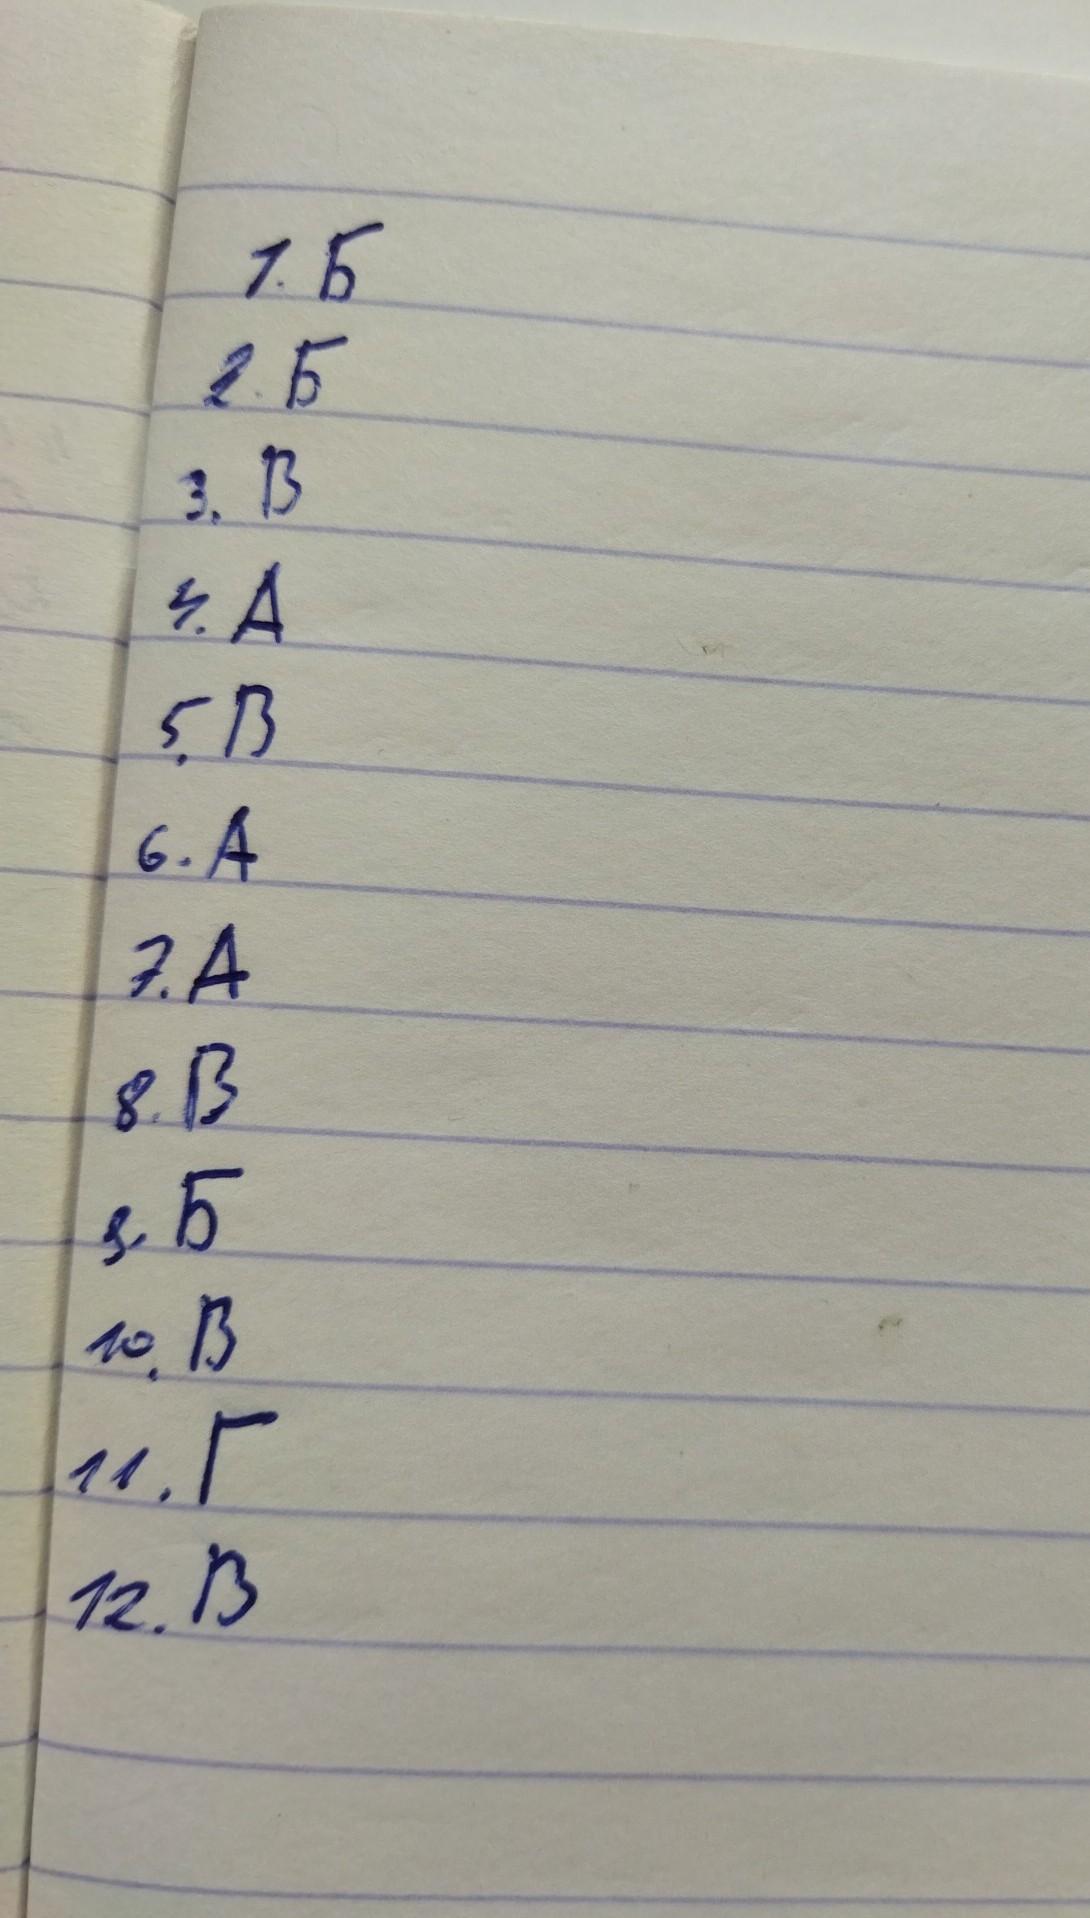 1. Б
2. Б
3. В
4. А
5. В
6. А
7. А
8. В
9. Б
10. В
11. Г
12. В